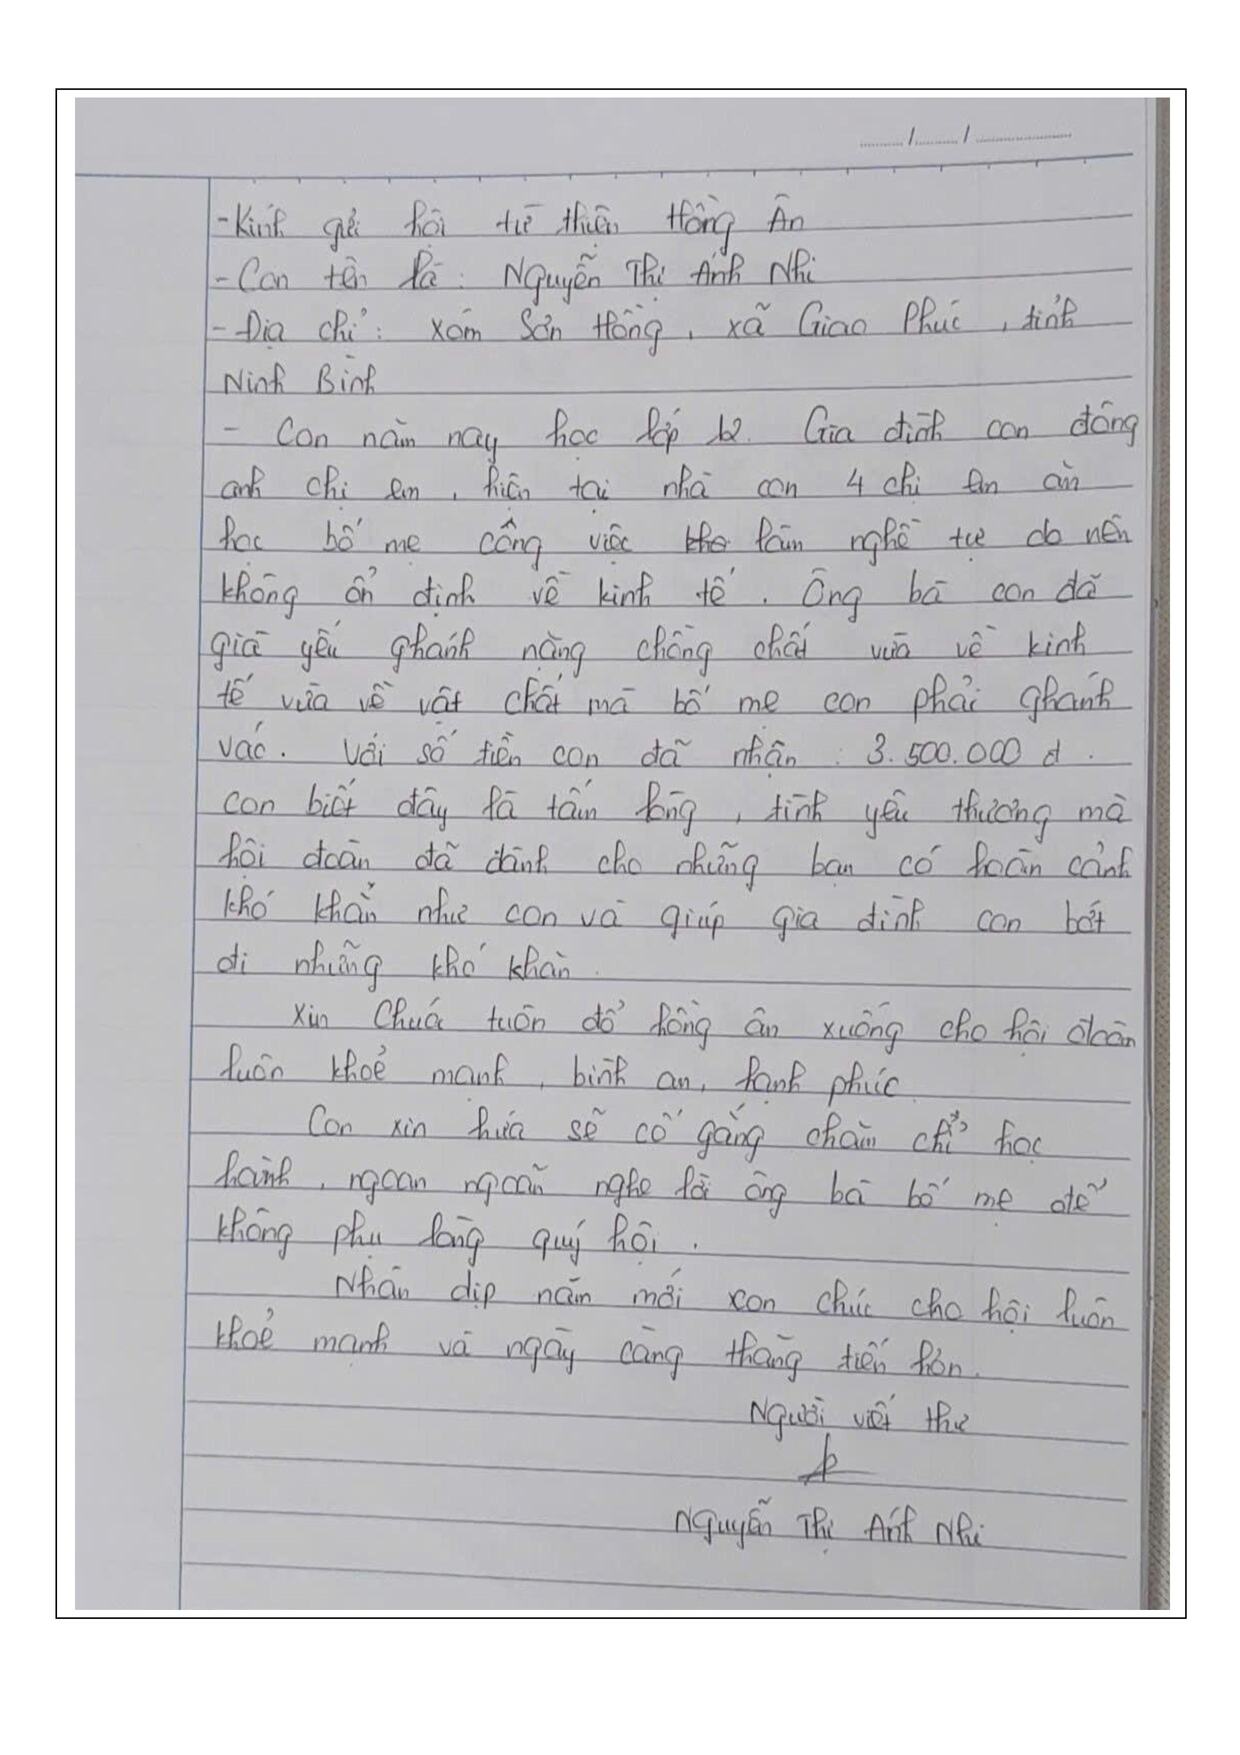 ....... / ....... / ................
- Kính gửi hội từ thiện Hồng Ân
- Con tên là : Nguyễn Thị Ánh Nhi
- Địa chỉ : xóm Sơn Hồng , xã Giao Phúc , tỉnh
Ninh Bình
- Con năm nay học lớp 12. Gia đình con đông
anh chị em , hiện tại nhà con 4 chị em ăn
học bố mẹ công việc kho làm nghề tự do nên
không ổn định về kinh tế . Ông bà con đã
già yếu ghánh nặng chồng chất vừa về kinh
tế vừa về vật chất mà bố mẹ con phải ghánh
vác. Với số tiền con đã nhận : 3.500.000 đ .
con biết đây là tấm lòng , tình yêu thương mà
hội đoàn đã dành cho những bạn có hoàn cảnh
khó khăn như con và giúp gia đình con bớt
đi những khó khăn .
Xin Chúa tuôn đổ hồng ân xuống cho hội đoàn
luôn khoẻ mạnh , bình an , hạnh phúc
Con xin hứa sẽ cố gắng chăm chỉ học
hành , ngoan ngoãn nghe lời ông bà bố mẹ để
không phụ lòng quý hội .
Nhân dịp năm mới con chúc cho hội luôn
khoẻ mạnh và ngày càng thăng tiến hơn .
Người viết thư
Nguyễn Thị Ánh Nhi